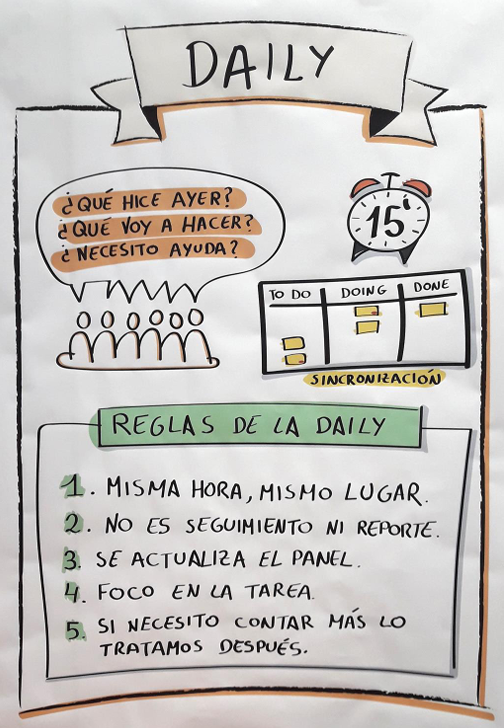 DAILY
¿QUÉ HICE AYER?
¿QUÉ VOY A HACER?
¿NECESITO AYUDA?
15'
TO DO
DOING
DONE
SINCRONIZACIÓN
REGLAS DE LA DAILY
1. MISMA HORA, MISMO LUGAR.
2. NO ES SEGUIMIENTO NI REPORTE.
3. SE ACTUALIZA EL PANEL.
4. FOCO EN LA TAREA.
5. SI NECESITO CONTAR MÁS LO
TRATAMOS DESPUÉS.